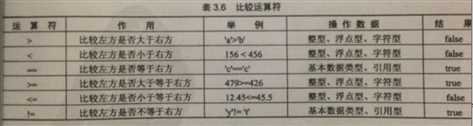 表3.6 比较运算符
运算符 作用 举例 操作数据 结果
> 比较左方是否大于右方 'a'>'b' 整型、浮点型、字符型 false
< 比较左方是否小于右方 156<456 整型、浮点型、字符型 false
== 比较左方是否等于右方 'c'=='c' 基本数据类型、引用型 true
>= 比较左方是否大于等于右方 479>=426 整型、浮点型、字符型 true
<= 比较左方是否小于等于右方 12.45<=45.5 整型、浮点型、字符型 true
!= 比较左方是否不等于右方 'y'!='t' 基本数据类型、引用型 true